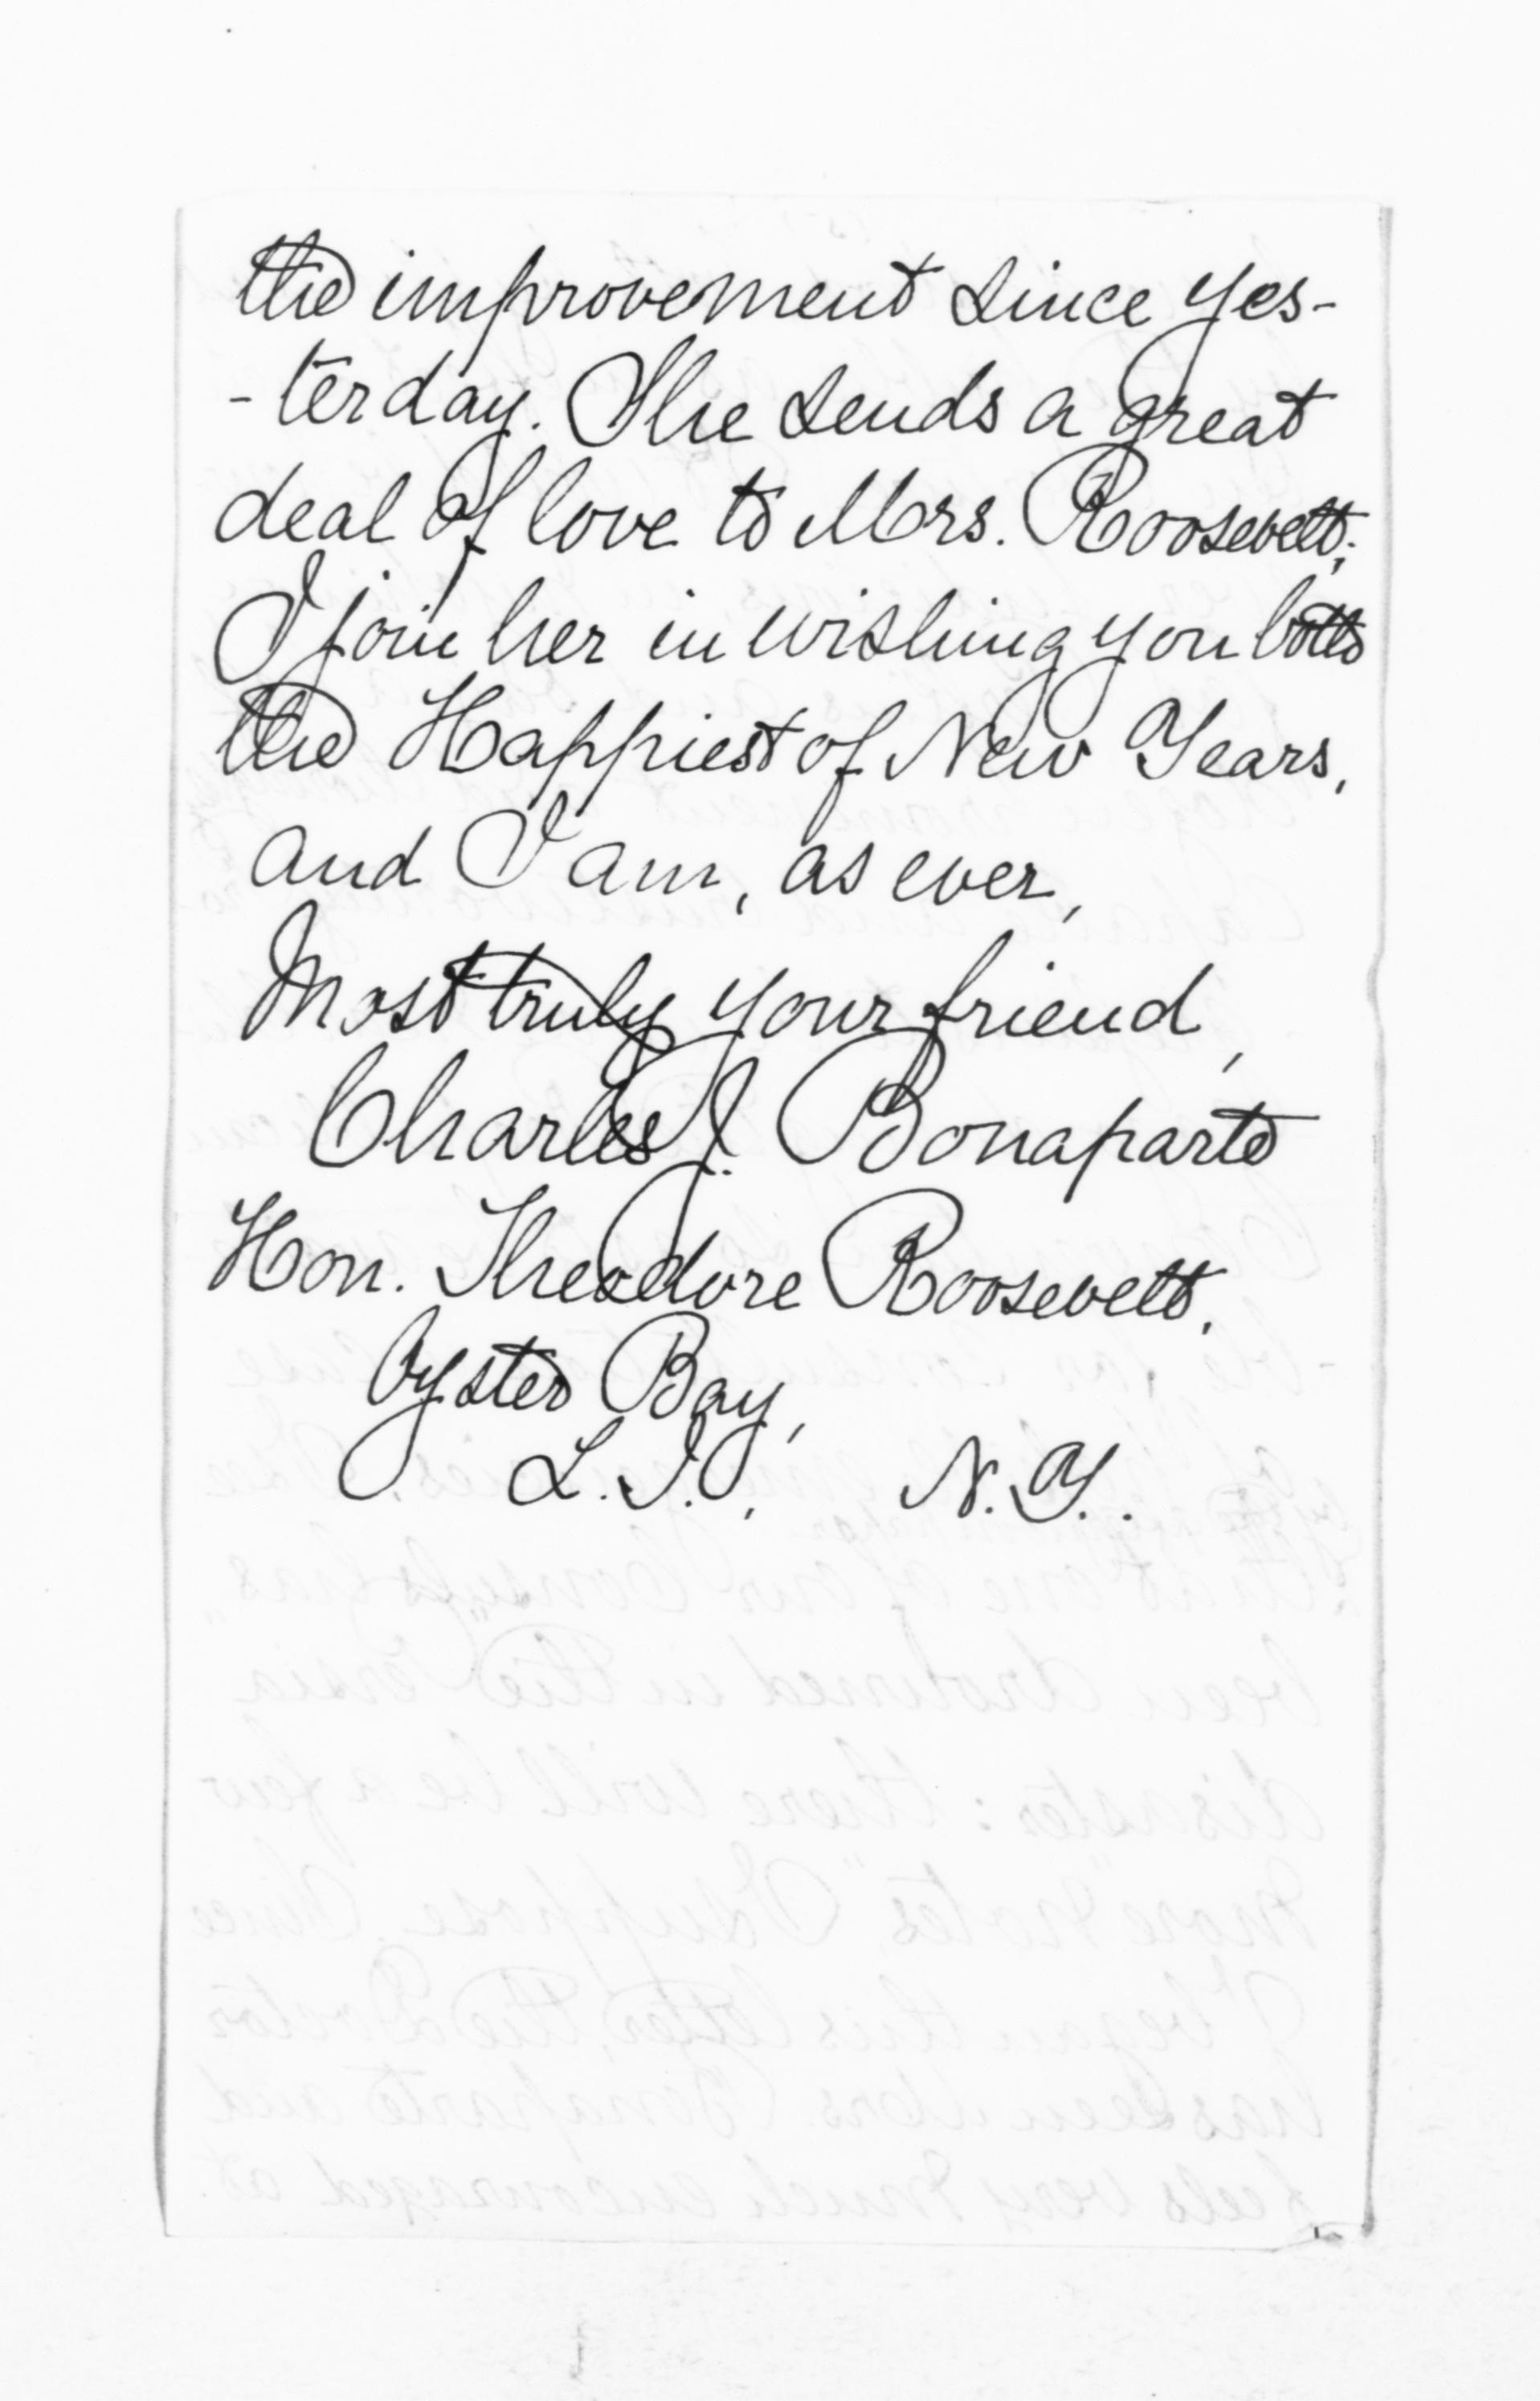 the improvement since yes-
-terday. She sends a great
deal of love to Mrs. Roosevelt;
I join her in wishing you both
the Happiest of New Years,
and I am, as ever,
Most truly your friend,
Charles J. Bonaparte
Hon. Theodore Roosevelt,
Oyster Bay,
L.I., N.Y..